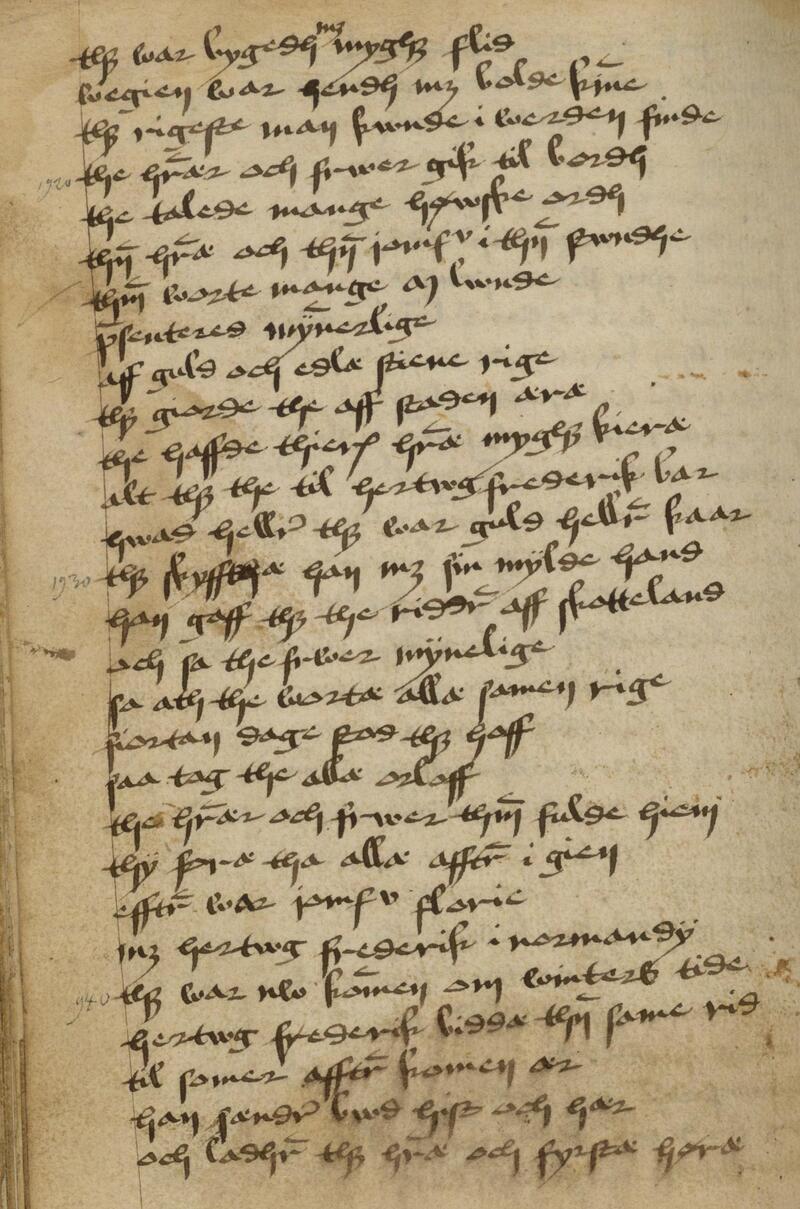 thꝫ war bygedh mꝫ myghꝫ flid
wegien war hendh mꝫ bolde kīne
thꝫ rigeste man kwnde i werden finde
1920 the hr̄ær och frwer gik til bordh
the talede mange høwske ordh
thn̄ hr̄æ och thn̄ jomfv i thn̄ stwndhe
thm̄ worte mange aj lwnde
p̄sentered mȳnerlige
aff guld och edlæ stiene rige
thꝫ giorde the aff staden æræ
the haffde thieræ hr̄æ myghꝫ kieræ
alt thꝫ the til hertwg frederik bar
hwad hellr̄ thꝫ war guld hellr̄ kaar
1930 thꝫ skyfftæ han mꝫ sin mylde hand
han gaff thꝫ the riddr̄ aff skotteland
och sa the frwer mynelige
sa ath the wortæ allæ samen rige
fiortan dage stod thꝫ hoff
saa tog the allæ orloff
the hr̄ær och frwer thm̄ fulde hiem
thy foræ tha allæ afftr̄ i gien
efftr̄ war jomfv florie
mꝫ hertwg frederik i normandy
1940 thꝫ war nw kom̄en om winters tide
hertwg frederik biddæ thn̄ same rid
til somer afftr̄ komen ær
han sændr̄ bwd hist och hær
och ladhr̄ thꝫ hr̄æ och fyrstæ høræ